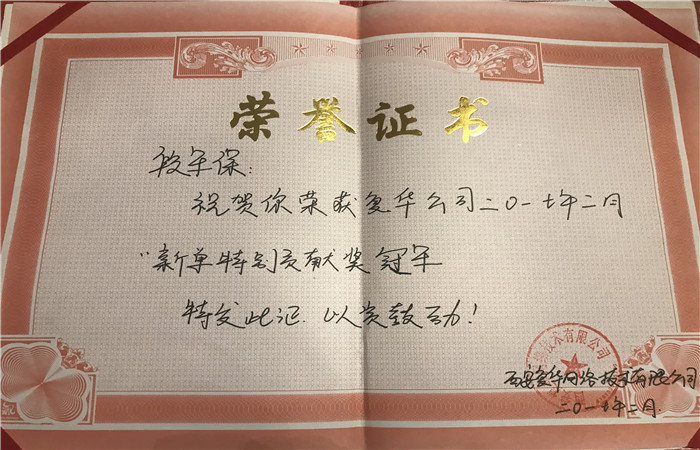 荣誉证书
段军保：
祝贺你荣获复华公司二〇一七年二月
“新单特别贡献奖冠军
特发此证．以资鼓励！
技术有限公司
西安复华网络技术有限公司
二〇一七年二月．